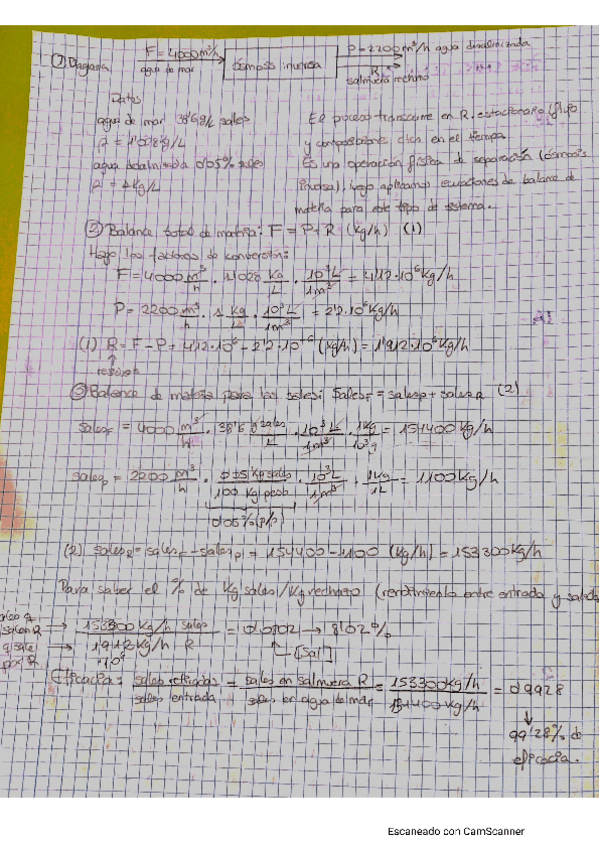 ① Diagrama F = 4000m³/h agua de mar → ósmosis inversa → P = 2200 m³/h agua desalinizada
R salmuera rechazo
Datos
agua de mar 38'6g/L sales
ρ = 1'028g/L
agua desalinizada 0'05% sales
ρ = 1kg/L
El proceso transcurre en R. estacionario (flujo
y composiciones ctes en el tiempo
Es una operación física de separación (ósmosis
inversa), luego aplicamos ecuaciones de balance de
materia para este tipo de sistema.
② Balance total de materia: F = P + R (kg/h) (1)
Hago los factores de conversión:
F = 4000 m³/h · 1'028 kg/L · 10³L/1m³ = 4'112·10⁶kg/h
P = 2200 m³/h · 1 kg/L · 10³L/1m³ = 2'2·10⁶kg/h
(1) R = F - P = 4'112·10⁶ - 2'2·10⁺⁶ (kg/h) = 1'912·10⁶kg/h
③ Balance de materia para las sales: SalesF = salesP + salesR (2)
salesF = 4000 m³/h · 38'6 g sales/L · 10³L/1m³ · 1kg/10³g = 154400kg/h
salesP = 2200 m³/h · 0'05 kg sales/100 kg prob · 10³L/1m³ · 1kg/1L = 1100kg/h
0'05% (p/p)
(2) salesR = |salesF - salesP| = 154400 - 1100 (kg/h) = 153300kg/h
Para saber el % de kg sales/kg rechazo (rendimiento entre entrada y salida
→ 153300 kg/h sales / 1'912·10⁶ kg/h R = 0'0802 → 8'02%
[Sal]
Eficacia: sales retiradas/sales entrada = sales en salmuera R/sales en agua de mar = 153300kg/h/154400kg/h = 0'9928
↓
99'28% de
eficacia.
Escaneado con CamScanner